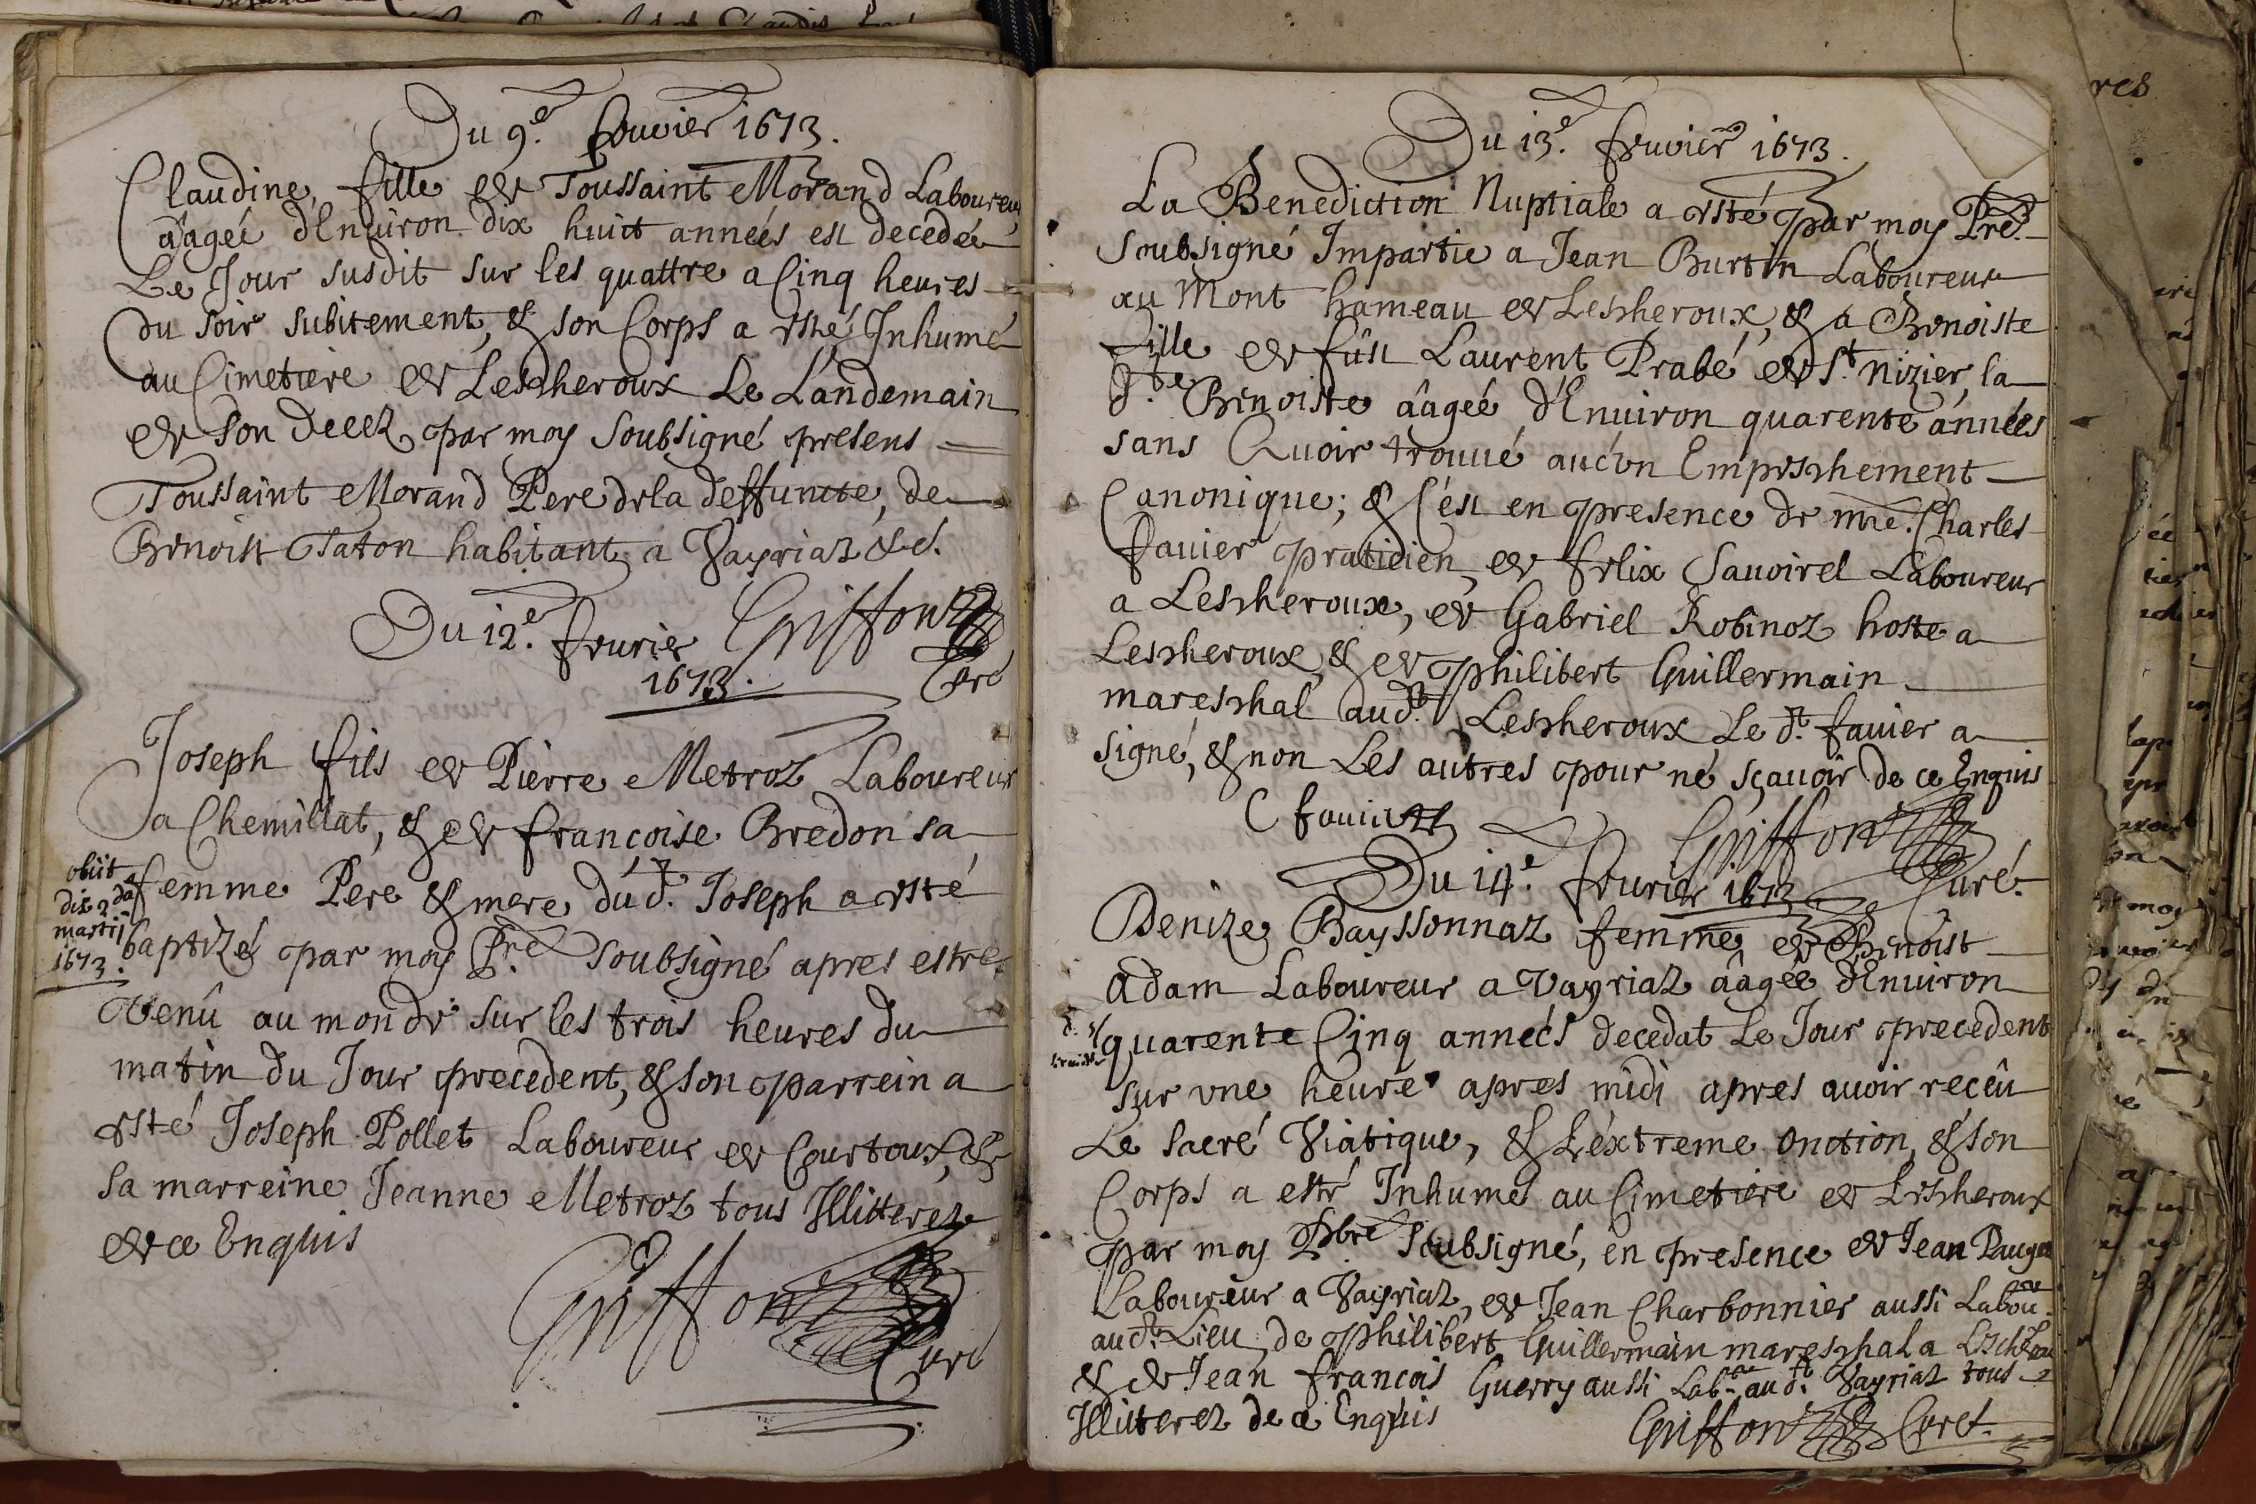 Du 9.e feuvier 1673.
Claudine, fille de Toussaint Morand Laboureur
aâgeé d'Enuiron dix huict anneés est decedeé
Le Jour susdit sur les quattre a Cinq heures
du soir subitement, & son Corps a esté Inhumé
au Cimetiere de Lescheroux Le Landemain
de son decez par moy soubsigné presens
Toussaint Morand Pere de la deffuncte, de
Benoist Taton habitant a Vayriaz &c.
Griffon
Curé
Du 12.e feurier
1673.
Joseph fils de Pierre Metroz Laboureur
a Chemillat, & de françoise Bredon sa
femme Pere & mere dud.t Joseph a esté
baptizé par moy Pre. soubsigné apres estre
venû au monde sur les trois heures du
matin du Jour precedent, & son parrein a
esté Joseph Pollet Laboureur de Courtoux, &
sa marreine Jeanne Metroz tous Illitterez
de ce Enquis
Griffon
Curé
obiit
die 2.da
martij
1673.
Du 13.e feuvier 1673.
La Benediction Nuptiale a esté par moy Pre.
soubsigné Impartie a Jean Burtin Laboureur
au Mont hameau de Lescheroux, & a Benoiste
fille de fûst Laurent Prabé de St. Nizier, la
d.te Benoiste aâgeé d'Enuiron quarente anneés
sans Auoir trouué aucun Empeschement
Canonique; & C'est en presence de me. Charles
fauier praticien, de felix Sauoirel Laboureur
a Lescheroux, de Gabriel Robinoz hoste a
Lescheroux, & de philibert Guillermain
mareschal aud.t Lescheroux Le d.t fauier a
signé, & non Les autres pour ne sçauoir de ce Enquis
C fauier
Griffon
Curé.
Du 14.e feurier 1673
Denize Bayssonnaz femme de Benoist
Adam Laboureur a Vayriaz aâgeé d'Enuiron
quarente Cinq anneés decedat Le Jour precedent
sur vne heure apres midi apres auoir receû
Le sacré Viatique, & L'extreme onction, & son
Corps a esté Inhumé au Cimetiere de Lescheroux
par moy Pbre soubsigné, en presence de Jean
Laboureur a Vayriaz, de Jean Charbonnier aussi Labou.
aud.t Lieu de philibert Guillermain mareschal a
& de Jean francois Guerry aussi Lab.r aud.t Vayriaz tous
Illitterez de ce Enquis
Griffon Curé.